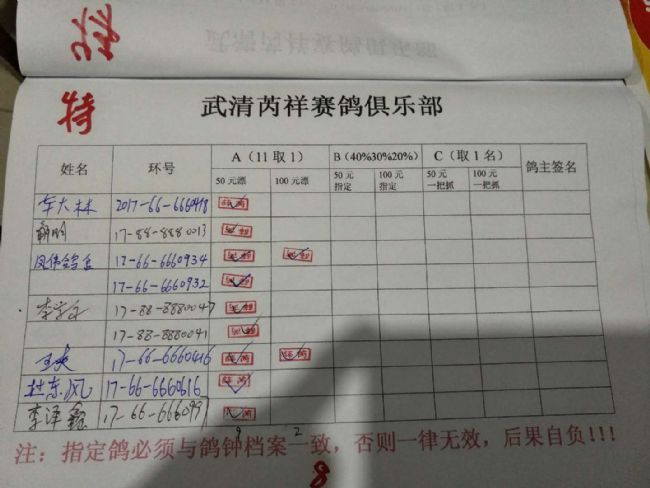 特
武清芮祥赛鸽俱乐部
姓名 环号 A（11取1） B（40%30%20%） C（取1名） 鸽主签名
50元漂 100元漂 50元指定 100元指定 50元一把抓 100元一把抓
车大林 2017-66-6660418
17-88-8880013
凤伟鸽舍 17-66-6660934
17-66-6660932
17-88-8880047
17-88-8880041
17-66-6660416
杜东风 17-66-6660616
李泽鑫 17-66-6660997
9 2
注：指定鸽必须与鸽钟档案一致，否则一律无效，后果自负!!!
8